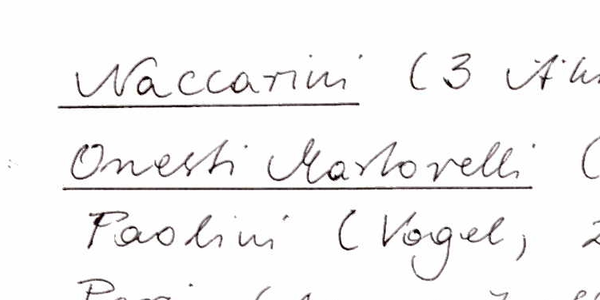 Naccarini (3
Onesti Martorelli (
Paolini (Vogel, 2